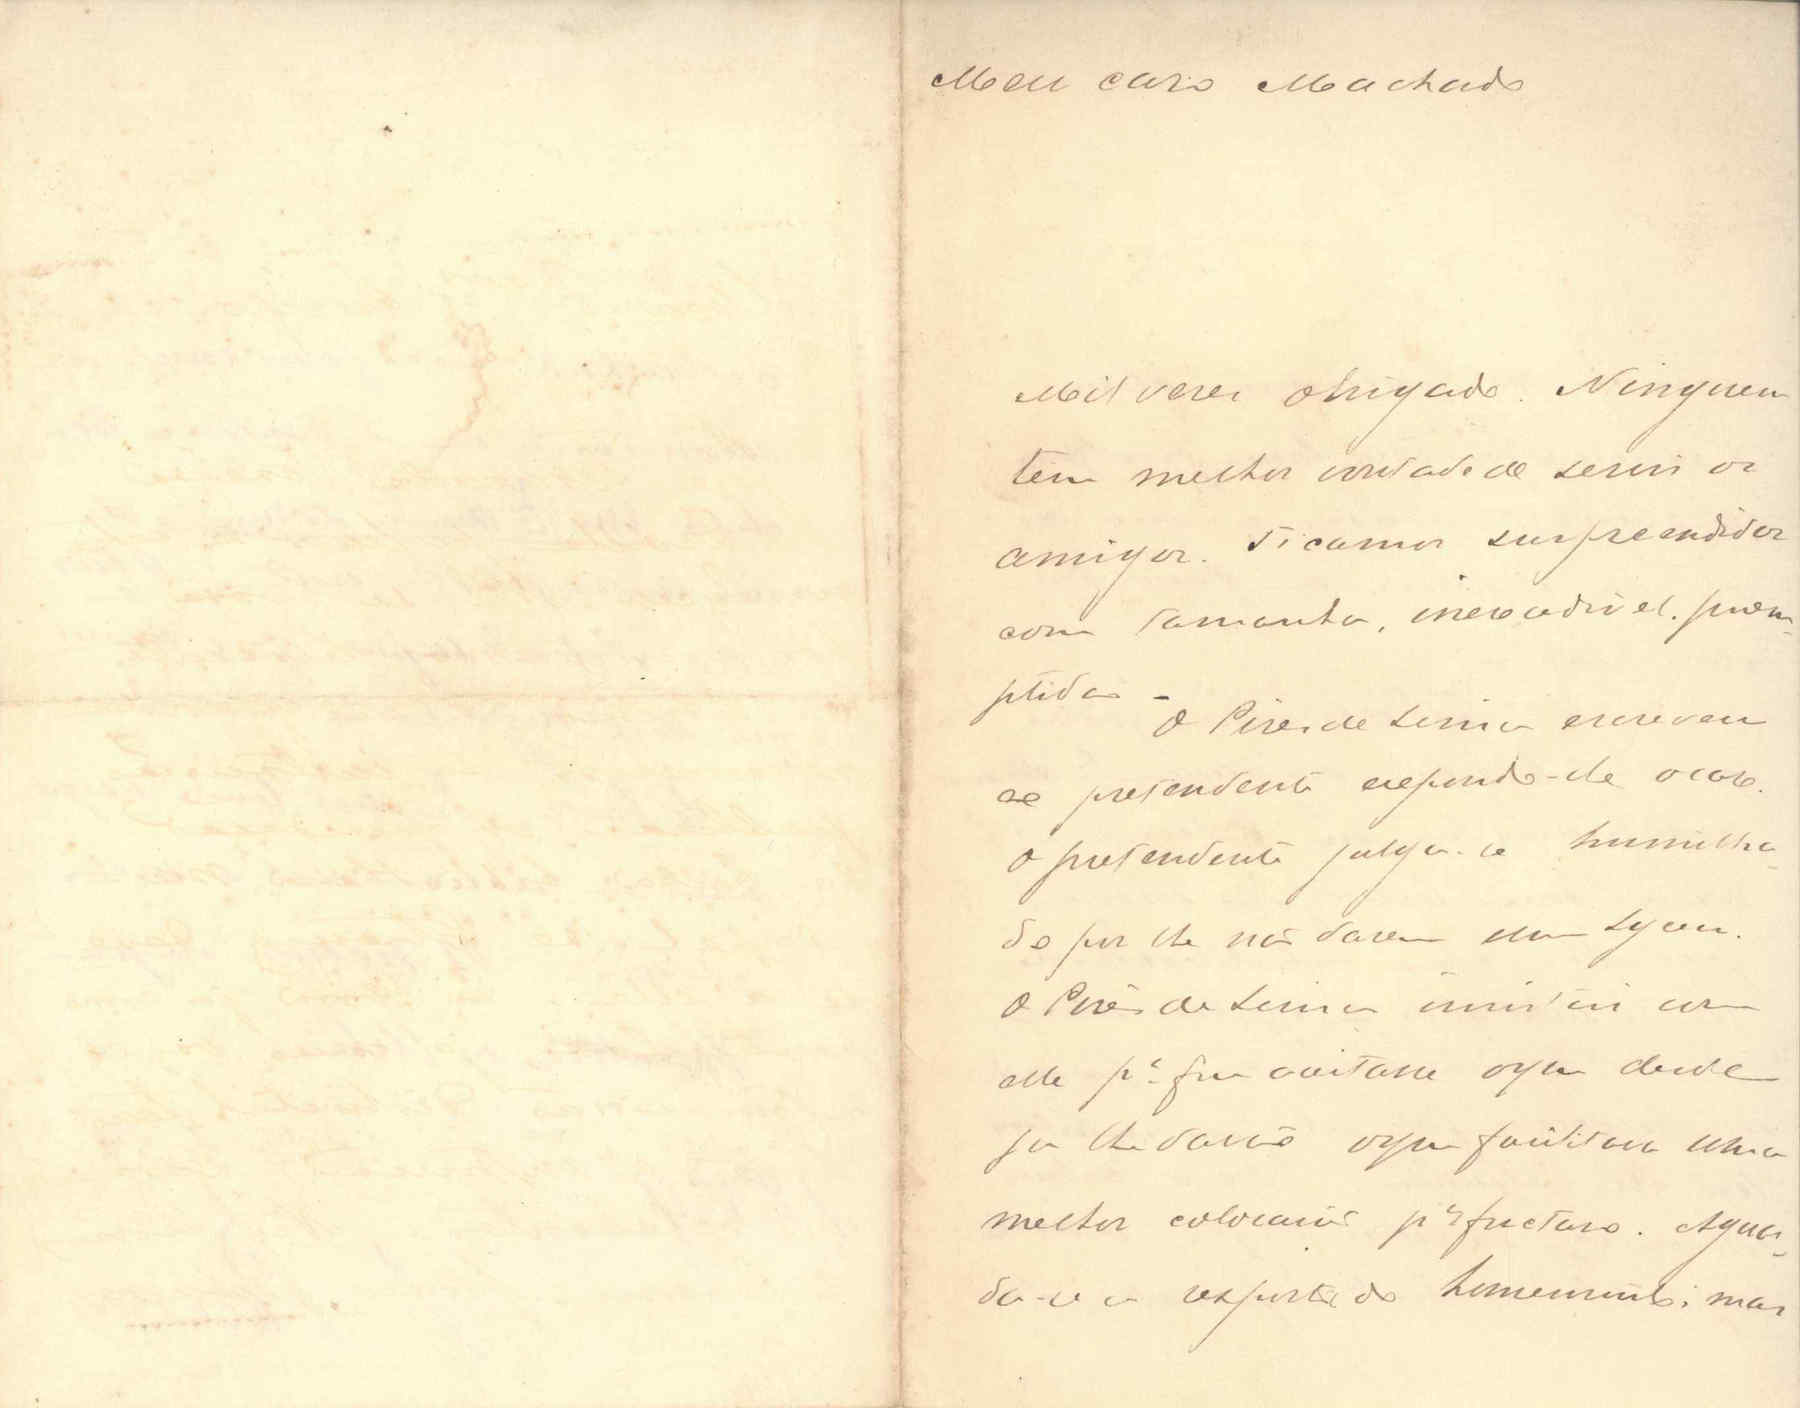 Meu caro Machado
Mil vezes obrigado. Ninguem
tem melhor vontade de servir os
amigos. Ficamos surpreendidos
com tamanha, inexcedivel, prom-
ptidão -
O Pires de Lima escreveu
ao pretendente expondo-lhe o caso.
O pretendente julga-se humilha-
do por lhe não darem um Lyceu.
O Pires de Lima insistiu com
elle pª que aceitasse o que desde
ja lhe davão o que facilitava uma
melhor colocação pª o futuro. Aguar-
da-se a resposta do homemsinho; mas